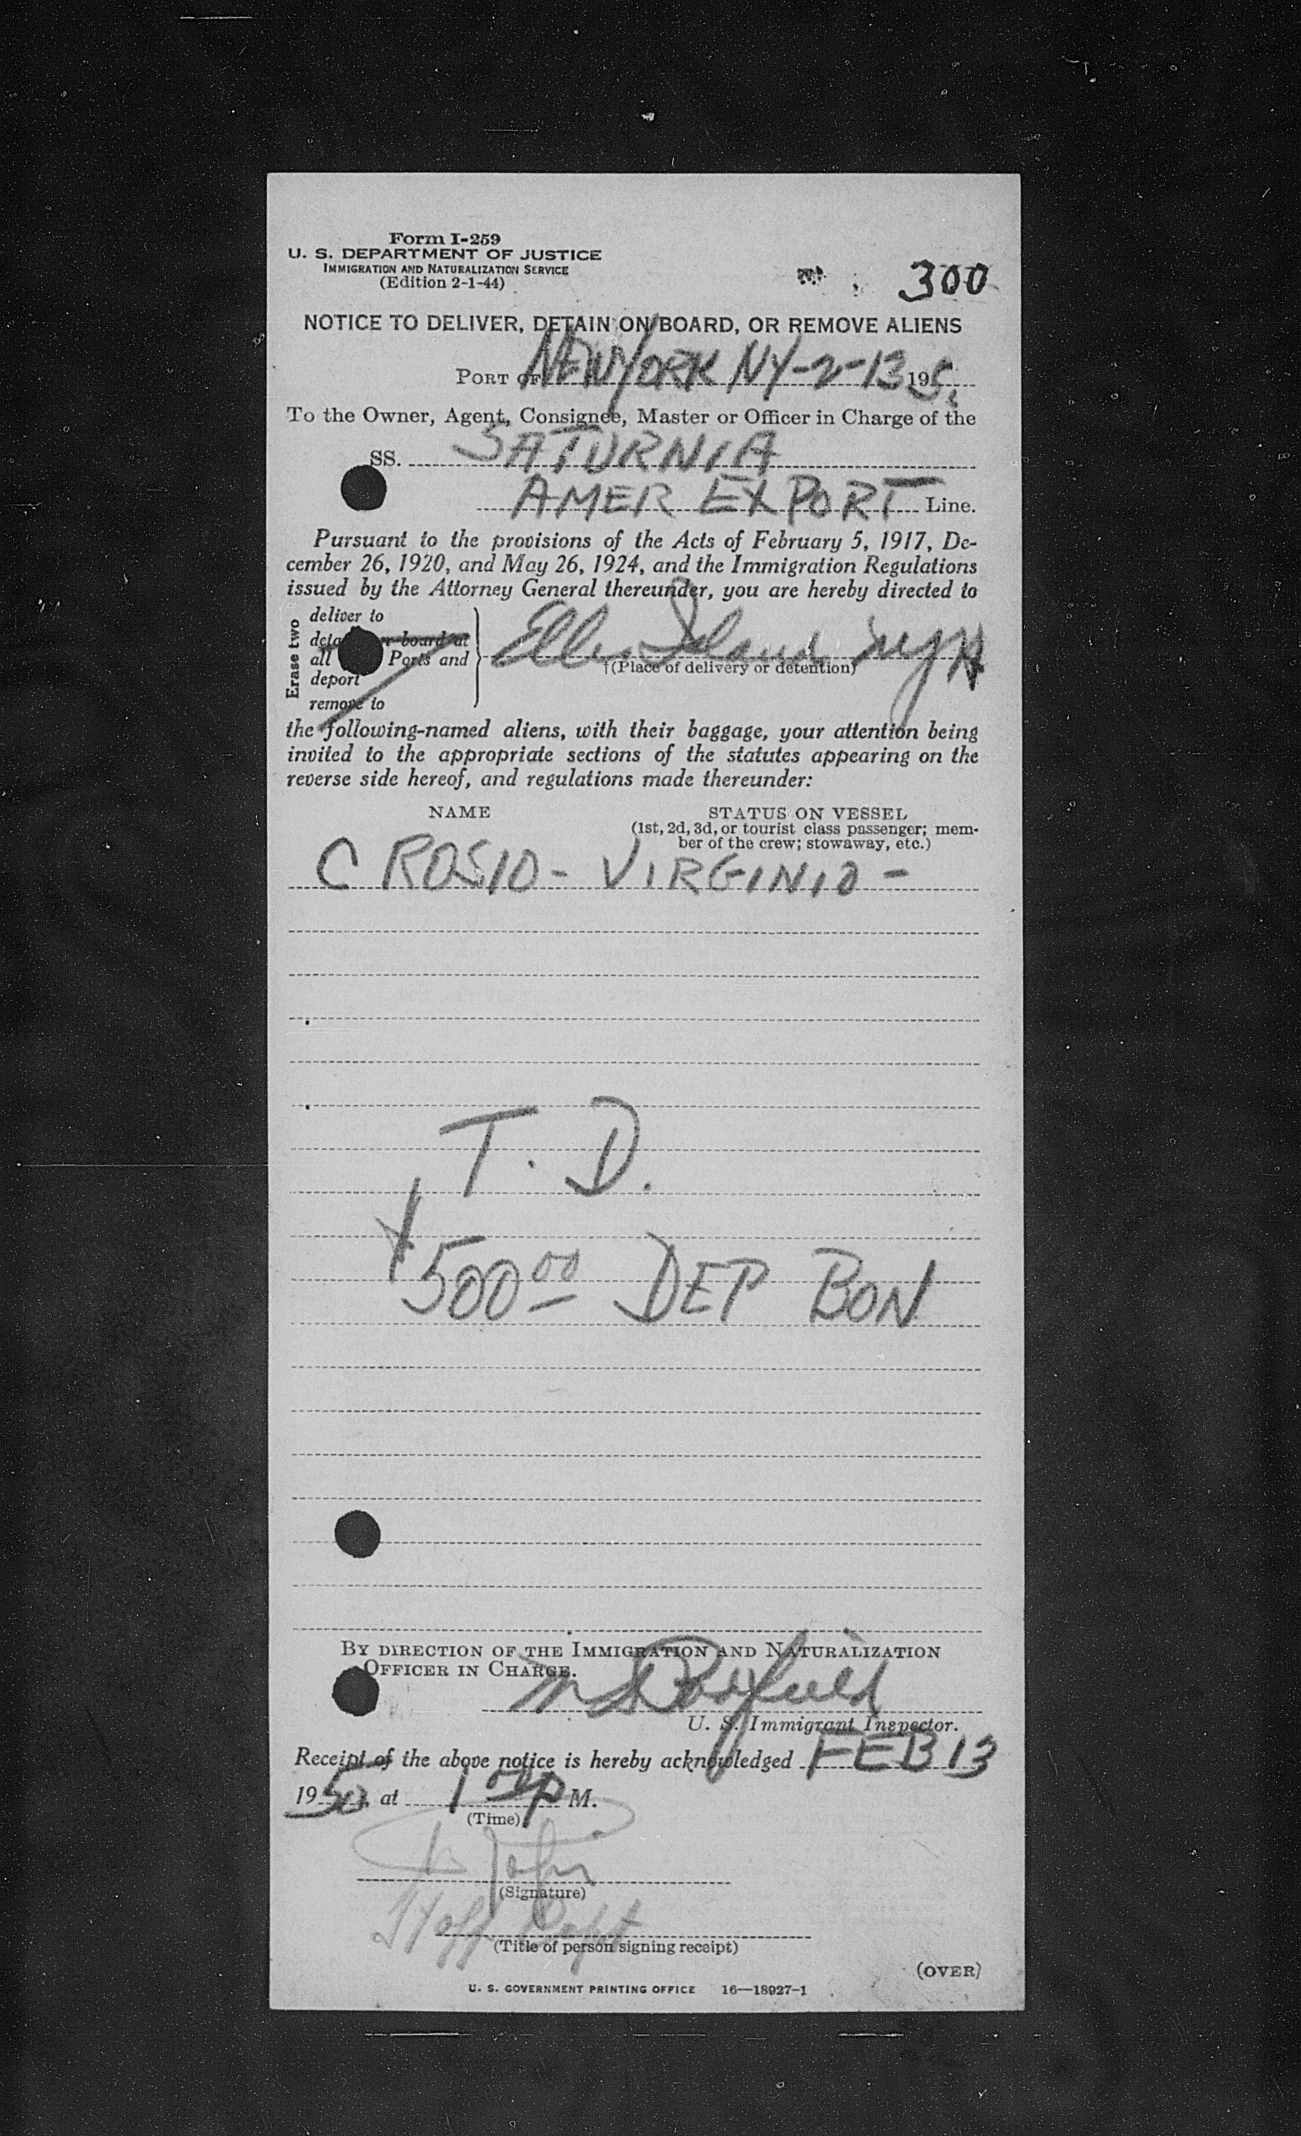 Form I-259
U. S. DEPARTMENT OF JUSTICE
IMMIGRATION AND NATURALIZATION SERVICE
(Edition 2-1-44)
300
NOTICE TO DELIVER, DETAIN ON BOARD, OR REMOVE ALIENS
PORT OF NEW YORK NY-2-13 195
To the Owner, Agent, Consignee, Master or Officer in Charge of the
SS. SATURNIA
AMER EXPORT Line.
Pursuant to the provisions of the Acts of February 5, 1917, De-
cember 26, 1920, and May 26, 1924, and the Immigration Regulations
issued by the Attorney General thereunder, you are hereby directed to
Erase two
deliver to
board at
all Ports and
deport
remove to
Ellis Island
†(Place of delivery or detention)
the following-named aliens, with their baggage, your attention being
invited to the appropriate sections of the statutes appearing on the
reverse side hereof, and regulations made thereunder:
NAME STATUS ON VESSEL
(1st, 2d, 3d, or tourist class passenger; mem-
ber of the crew; stowaway, etc.)
CROSIO - VIRGINIO -
T. D.
500 00 DEP BON
BY DIRECTION OF THE IMMIGRATION AND NATURALIZATION
OFFICER IN CHARGE.
U. S. Immigrant Inspector.
Receipt of the above notice is hereby acknowledged FEB 13
1950, at 1 00 P M.
(Time)
(Signature)
(Title of person signing receipt)
(OVER)
U. S. GOVERNMENT PRINTING OFFICE 16—18927-1